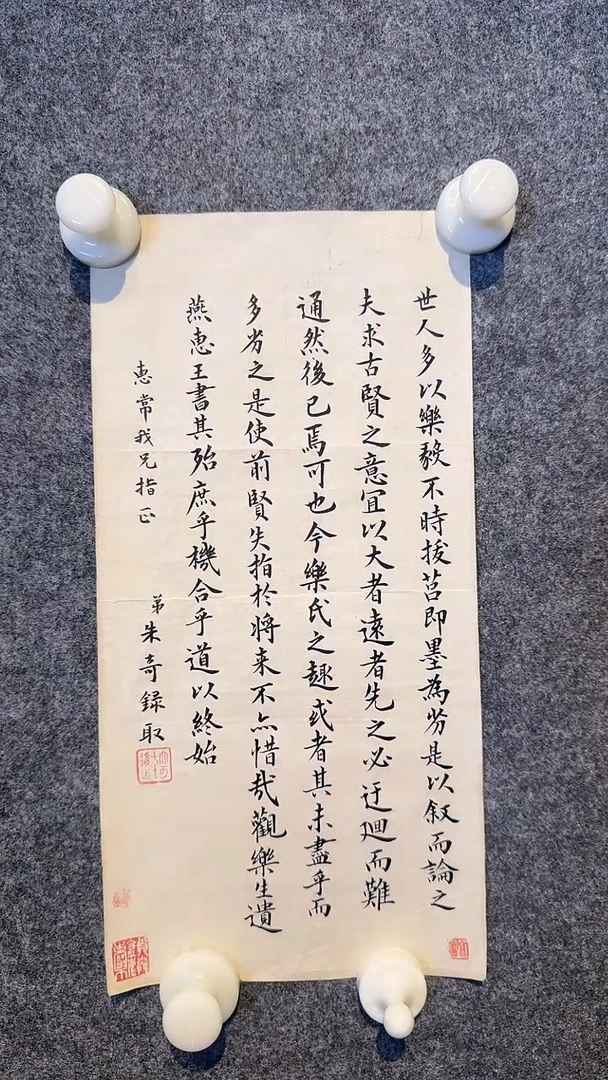 世人多以樂毅不時拔莒即墨為劣是以叙而論之
夫求古賢之意宜以大者遠者先之必迂迴而難
通然後已焉可也今樂氏之趣或者其未盡乎而
多劣之是使前賢失指於將来不亦惜哉觀樂生遺
燕惠王書其殆庶乎機合乎道以終始
惠常我兄指正
弟朱奇録取